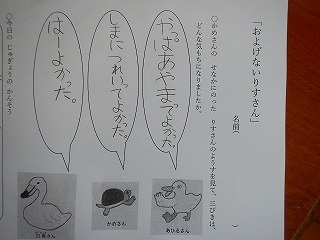 「およげないりすさん」
名前（　　　　　）
○かめさんの せなかにのった りすさんのようすを見て、三びきは、
どんな気もちになりましたか。
やっぱあやまてよかった。
しまにつれいてよかった。
はーよかった。
あひるさん
かめさん
白鳥さん
○今日の じゅぎょうの かんそう